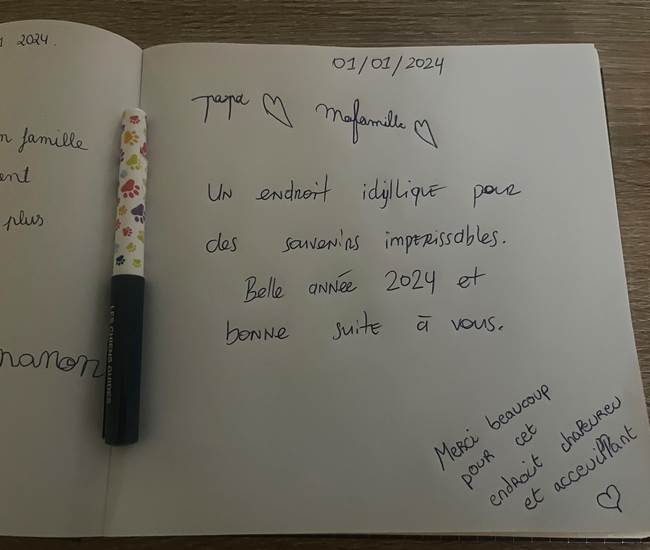 1 2024.
n famille
ent
plus
nanon
LES CHIENS GUIDES
01/01/2024
papa ♡ Mafamille ♡
Un endroit idyllique pour
des souvenirs imperissables.
Belle année 2024 et
bonne suite à vous.
Merci beaucoup
pour cet
endroit chaleureu
et acceuillant
♡